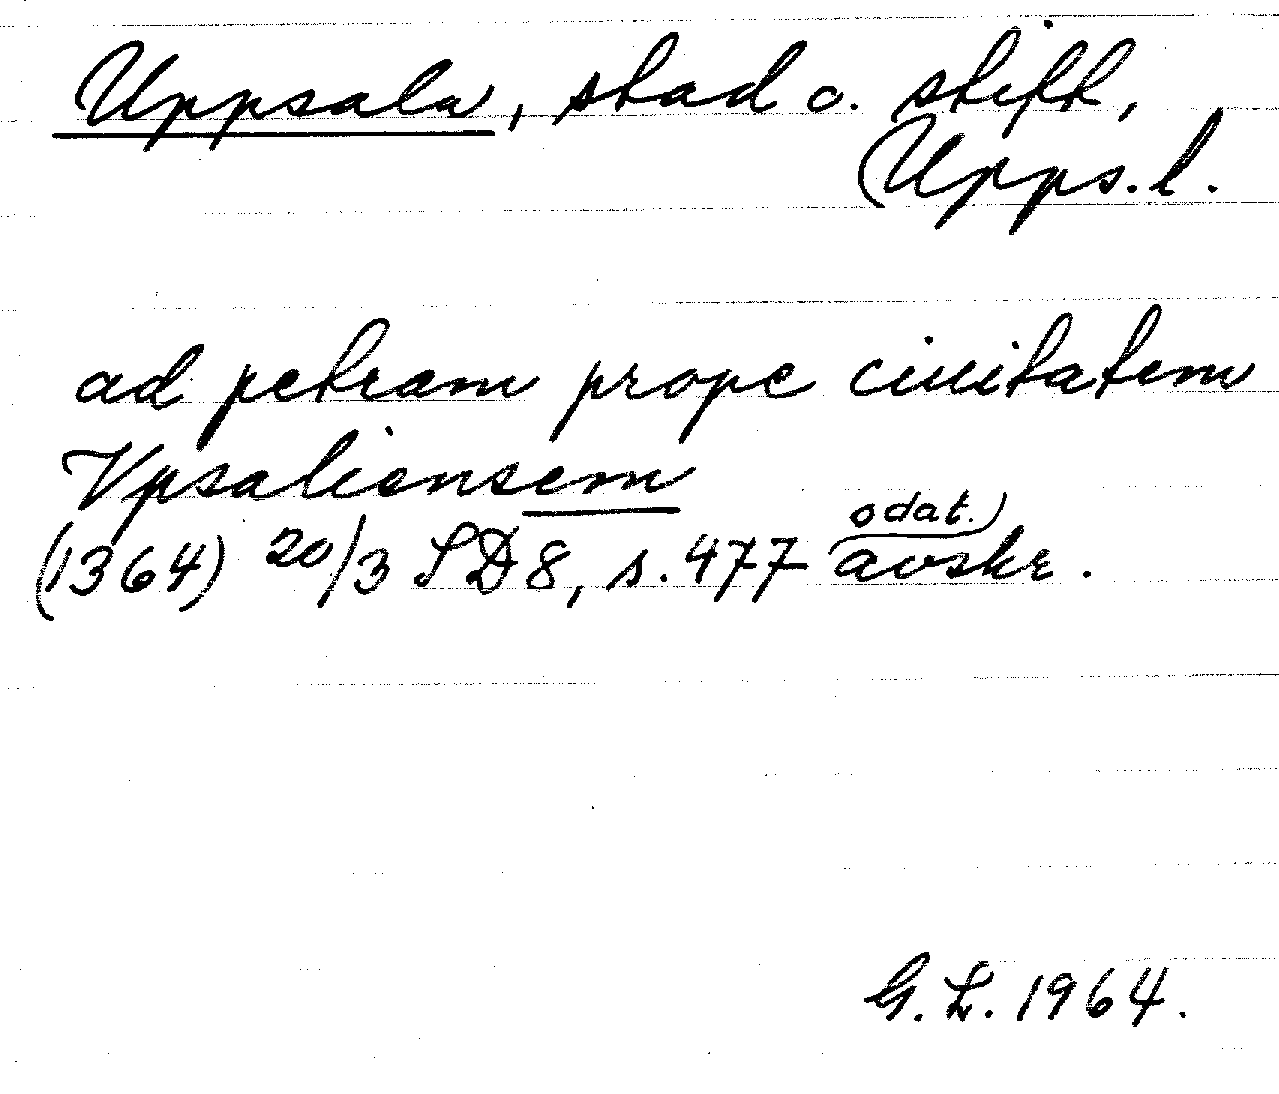 Uppsala, stad o. stift,
Upps. l.
ad petram prope ciuitatem
Vpsaliensem
(1364) 20/3 SD 8, s. 477 odat. avskr.
G. L. 1964.